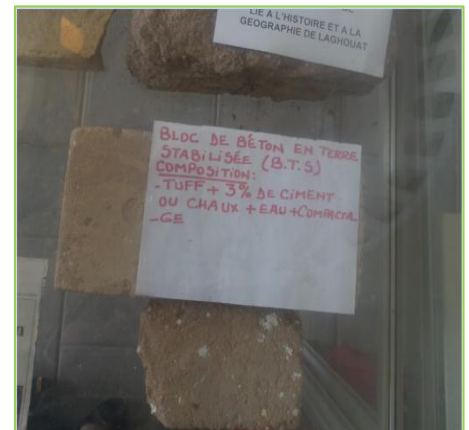 LIE A L'HISTOIRE ET A LA
GEOGRAPHIE DE LAGHOUAT
BLOC DE BÉTON EN TERRE
STABILISÉE (B.T.S)
COMPOSITION:
-TUFF + 3% DE CIMENT
OU CHAUX + EAU + COMPACTA
-GE